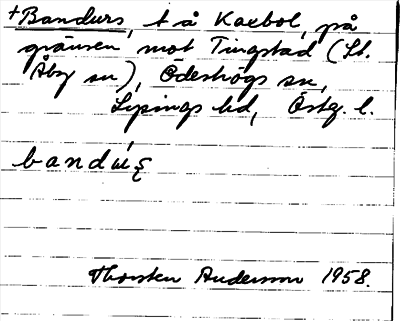 +Bandurs, t å Kaxbol, på
gränsen mot Tingstad (St.
Åby sn), Ödeshögs sn,
Lysings hd, Östg. l.
Thorsten Andersson 1958.